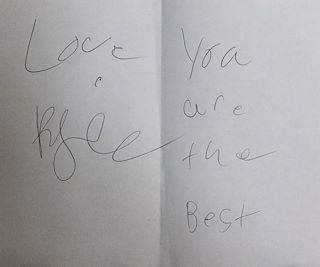 Love
Rylee
You
are
the
Best